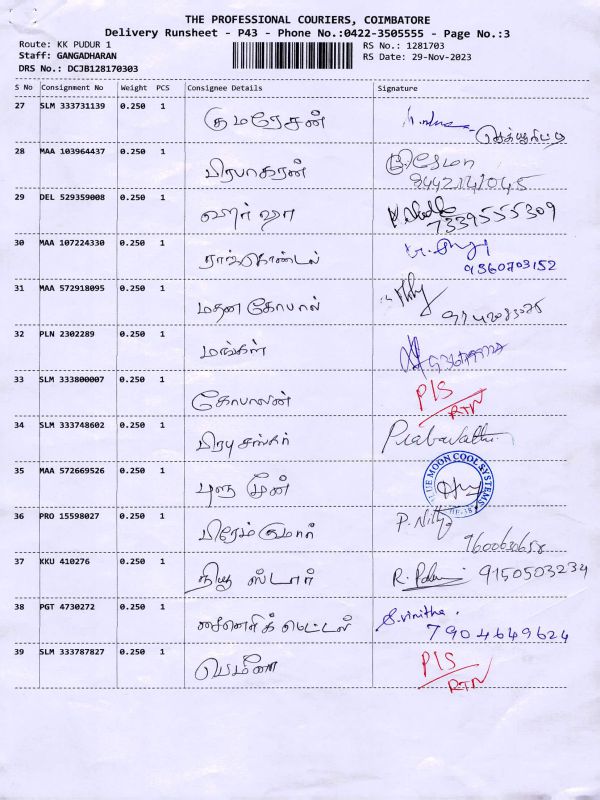 THE PROFESSIONAL COURIERS, COIMBATORE
Delivery Runsheet - P43 - Phone No.:0422-3505555 - Page No.:3
Route: KK PUDUR 1 RS No.: 1281703
Staff: GANGADHARAN RS Date: 29-Nov-2023
DRS No.: DCJB128170303
S No Consignment No Weight PCS Consignee Details Signature
27 SLM 333731139 0.250 1 குமரேசன்
28 MAA 103964437 0.250 1 பிரபாகரன் பிரேமா
9442141045
29 DEL 529359008 0.250 1
7339555309
30 MAA 107224330 0.250 1
9360703152
31 MAA 572918095 0.250 1 மதன கோபால்
32 PLN 2302289 0.250 1 மங்கள்
33 SLM 333800007 0.250 1 கோபாலன் P/S
RTN
34 SLM 333748602 0.250 1 பிரபு சங்கர் Prabavathi
35 MAA 572669526 0.250 1 புளூ மூன் BLUE MOON COOL SYSTEMS
36 PRO 15598027 0.250 1 பிரேம்குமார் P. Nithya
9600630658
37 KKU 410276 0.250 1 நியூ ஸ்டார் 9150503234
38 PGT 4730272 0.250 1 மெட்டல் S.vinitha.
7904649624
39 SLM 333787827 0.250 1 P/S
RTN